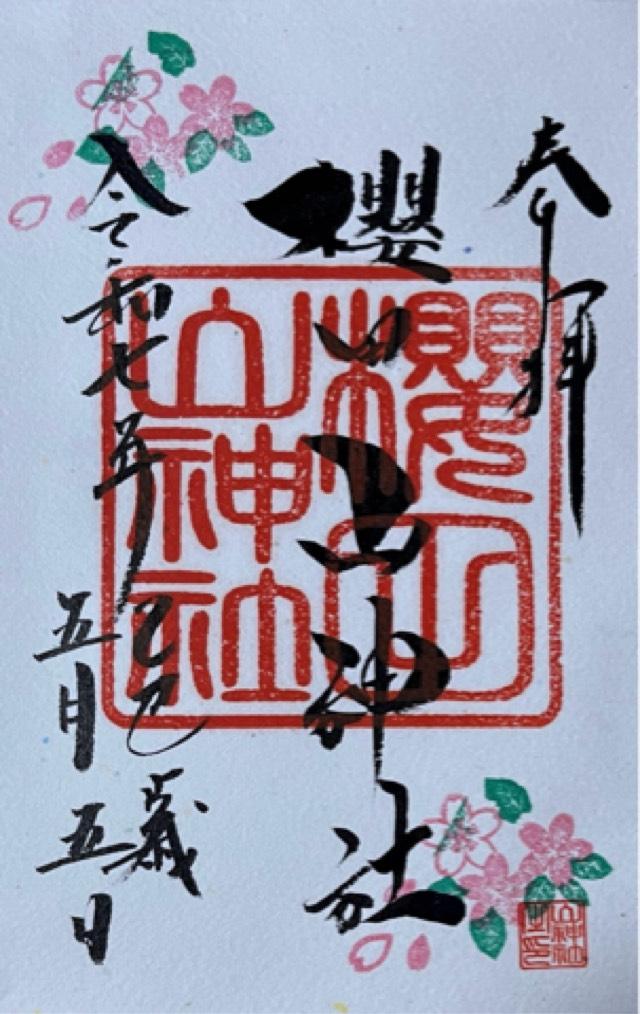 奉拝
櫻田山神社
櫻田
山神社
令和七年
乙巳歳
五月五日
山神社
之印